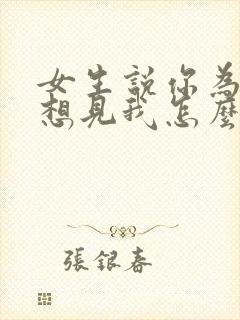 女生說你為
想見我怎麼
張銀春